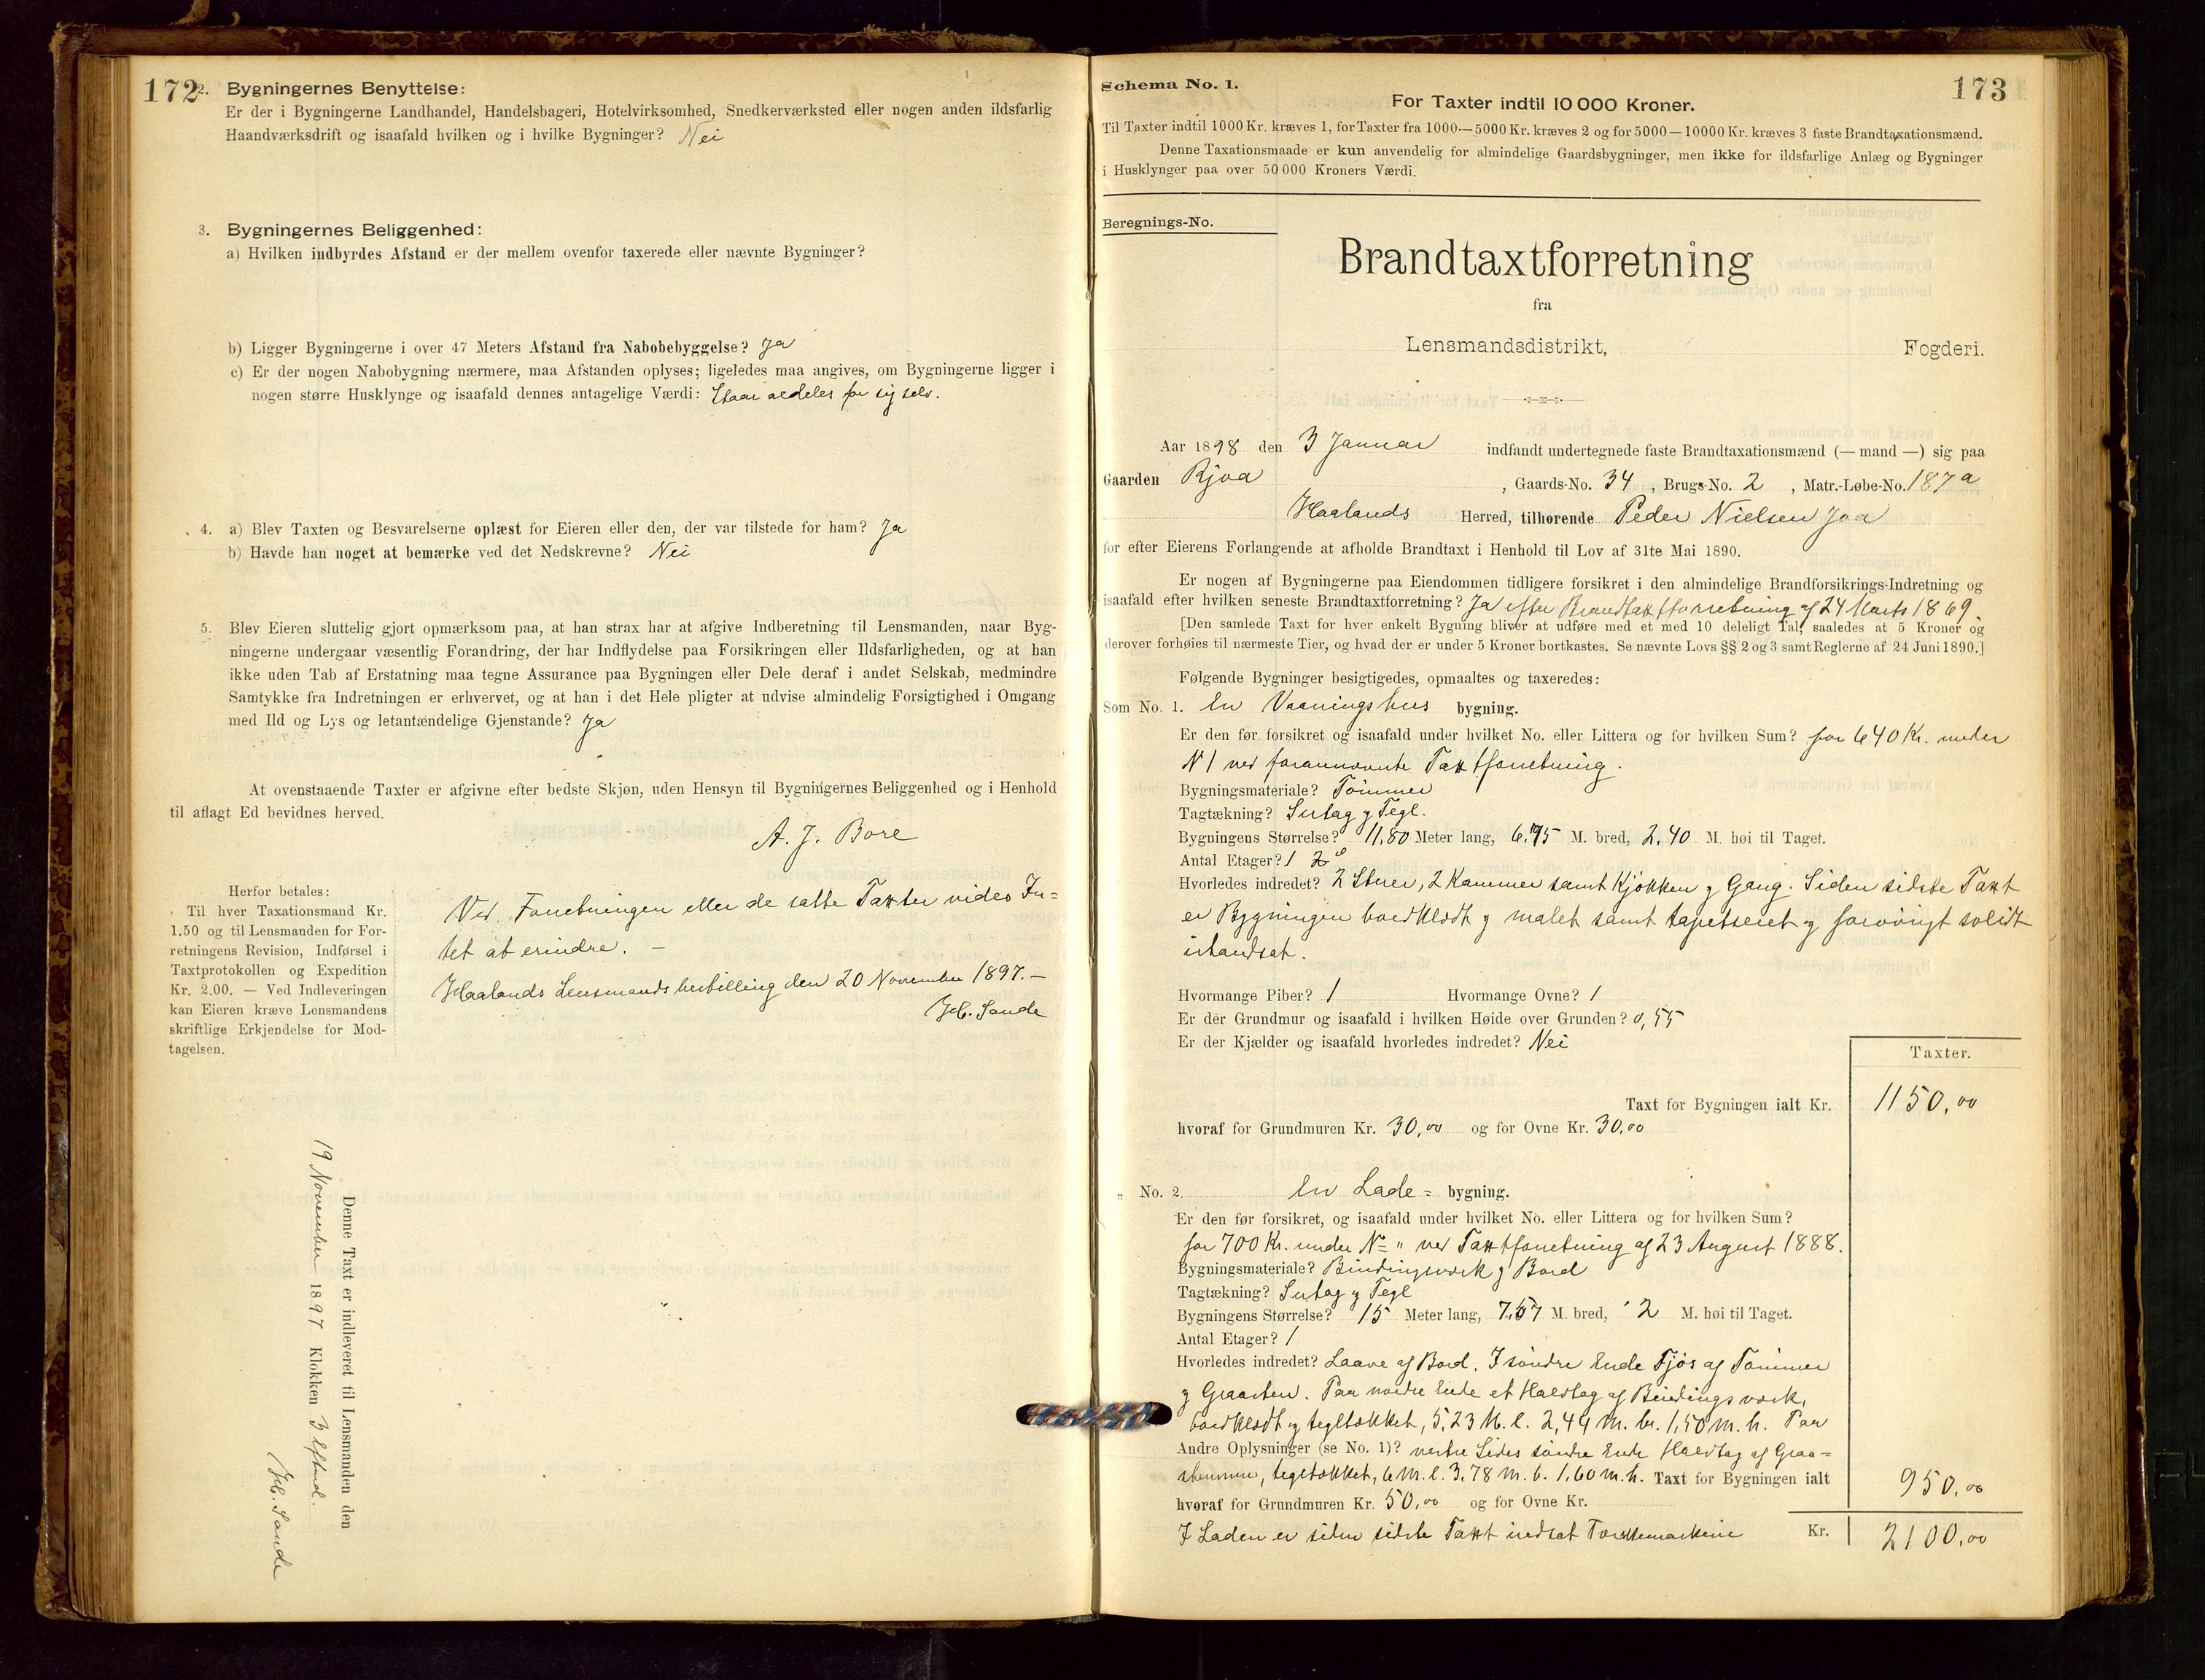 172
2. Bygningernes Benyttelse:
Er der i Bygningerne Landhandel, Handelsbageri, Hotelvirksomhed, Snedkerværksted eller nogen anden ildsfarlig
Haandværksdrift og isaafald hvilken og i hvilke Bygninger? Nei
3. Bygningernes Beliggenhed:
a) Hvilken indbyrdes Afstand er der mellem ovenfor taxerede eller nævnte Bygninger?
b) Ligger Bygningerne i over 47 Meters Afstand fra Nabobebyggelse? Ja
c) Er der nogen Nabobygning nærmere, maa Afstanden oplyses; ligeledes maa angives, om Bygningerne ligger i
nogen større Husklynge og isaafald dennes antagelige Værdi: Staar aldeles for sig selv.
4. a) Blev Taxten og Besvarelserne oplæst for Eieren eller den, der var tilstede for ham? Ja
b) Havde han noget at bemærke ved det Nedskrevne? Nei
5. Blev Eieren sluttelig gjort opmærksom paa, at han strax har at afgive Indberetning til Lensmanden, naar Byg-
ningerne undergaar væsentlig Forandring, der har Indflydelse paa Forsikringen eller Ildsfarligheden, og at han
ikke uden Tab af Erstatning maa tegne Assurance paa Bygningen eller Dele deraf i andet Selskab, medmindre
Samtykke fra Indretningen er erhvervet, og at han i det Hele pligter at udvise almindelig Forsigtighed i Omgang
med Ild og Lys og letantændelige Gjenstande? Ja
At ovenstaaende Taxter er afgivne efter bedste Skjøn, uden Hensyn til Bygningernes Beliggenhed og i Henhold
til aflagt Ed bevidnes herved.
A. J. Bore
Herfor betales:
Til hver Taxationsmand Kr.
1.50 og til Lensmanden for For-
retningens Revision, Indførsel i
Taxtprotokollen og Expedition
Kr. 2.00. — Ved Indleveringen
kan Eieren kræve Lensmandens
skriftlige Erkjendelse for Mod-
tagelsen.
Ved Forretningen eller de satte Taxter vides In-
tet at erindre. —
Haalands Lensmandsbestilling den 20 November 1897. —
Sande
Denne Taxt er indleveret til Lensmanden den
19 November 1897 Klokken 3 Eftmd.
Sande
Schema No. 1.
173
For Taxter indtil 10 000 Kroner.
Til Taxter indtil 1000 Kr. kræves 1, for Taxter fra 1000—5000 Kr. kræves 2 og for 5000—10000 Kr. kræves 3 faste Brandtaxationsmænd.
Denne Taxationsmaade er kun anvendelig for almindelige Gaardsbygninger, men ikke for ildsfarlige Anlæg og Bygninger
i Husklynger paa over 50 000 Kroners Værdi.
Beregnings-No.
Brandtaxtforretning
fra
Lensmandsdistrikt, Fogderi.
Aar 1898 den 3 Januar indfandt undertegnede faste Brandtaxationsmænd (— mand —) sig paa
Gaarden Rjoa, Gaards-No. 34, Brugs-No. 2, Matr.-Løbe-No. 187a
Haalands Herred, tilhørende Peder Nielsen Joa
for efter Eierens Forlangende at afholde Brandtaxt i Henhold til Lov af 31te Mai 1890.
Er nogen af Bygningerne paa Eiendommen tidligere forsikret i den almindelige Brandforsikrings-Indretning og
isaafald efter hvilken seneste Brandtaxtforretning? Ja efter Brandtaxtforretning af 24 Marts 1869.
[Den samlede Taxt for hver enkelt Bygning bliver at udføre med et med 10 deleligt Tal, saaledes at 5 Kroner og
derover forhøies til nærmeste Tier, og hvad der er under 5 Kroner bortkastes. Se nævnte Lovs §§ 2 og 3 samt Reglerne af 24 Juni 1890.]
Følgende Bygninger besigtigedes, opmaaltes og taxeredes:
Som No. 1. En Vaaningshus bygning.
Er den før forsikret og isaafald under hvilket No. eller Littera og for hvilken Sum? for 640 Kr. under
N 1 ved forannævnte Taxtforretning.
Bygningsmateriale? Tømmer
Tagtækning? Sutag og Tegl.
Bygningens Størrelse? 11,80 Meter lang, 6,95 M. bred, 2,40 M. høi til Taget.
Antal Etager? 1
Hvorledes indredet? 2 Stuer, 2 Kammer samt Kjøkken og Gang. Siden sidste Taxt
er Bygningen bordklædt og malet samt tapetseret og forøvrigt solidt
istandsat.
Hvormange Piber? 1 Hvormange Ovne? 1
Er der Grundmur og isaafald i hvilken Høide over Grunden? 0,55
Er der Kjælder og isaafald hvorledes indredet? Nei
Taxter.
Taxt for Bygningen ialt Kr. 1150,00
hvoraf for Grundmuren Kr. 30,00 og for Ovne Kr. 30,00
„ No. 2. En Lade- bygning.
Er den før forsikret, og isaafald under hvilket No. eller Littera og for hvilken Sum?
for 700 Kr. under No " ved Taxtforretning af 23 August 1888.
Bygningsmateriale? Bindingsværk og Bord
Tagtækning? Sutag og Tegl
Bygningens Størrelse? 15 Meter lang, 7,57 M. bred, 2 M. høi til Taget.
Antal Etager? 1
Hvorledes indredet? Laave af Bord. I søndre Ende Fjøs af Tømmer
og Graasten. Paa nordre Ende et Halvtag af Bindingsværk,
bordklædt og tegltækket, 5,23 M. l. 2,44 m. br. 1,50 m. h. Paa
Andre Oplysninger (se No. 1)? vestre Sides søndre Ende Halvtag af Graa-
stensmur, tegltækket, 6 m. l. 3,78 m. b. 1,60 m. h. Taxt for Bygningen ialt 950,00
hvoraf for Grundmuren Kr. 50,00 og for Ovne Kr.
I Laden er siden sidste Taxt indsat Tærskemaskine Kr. 2100,00